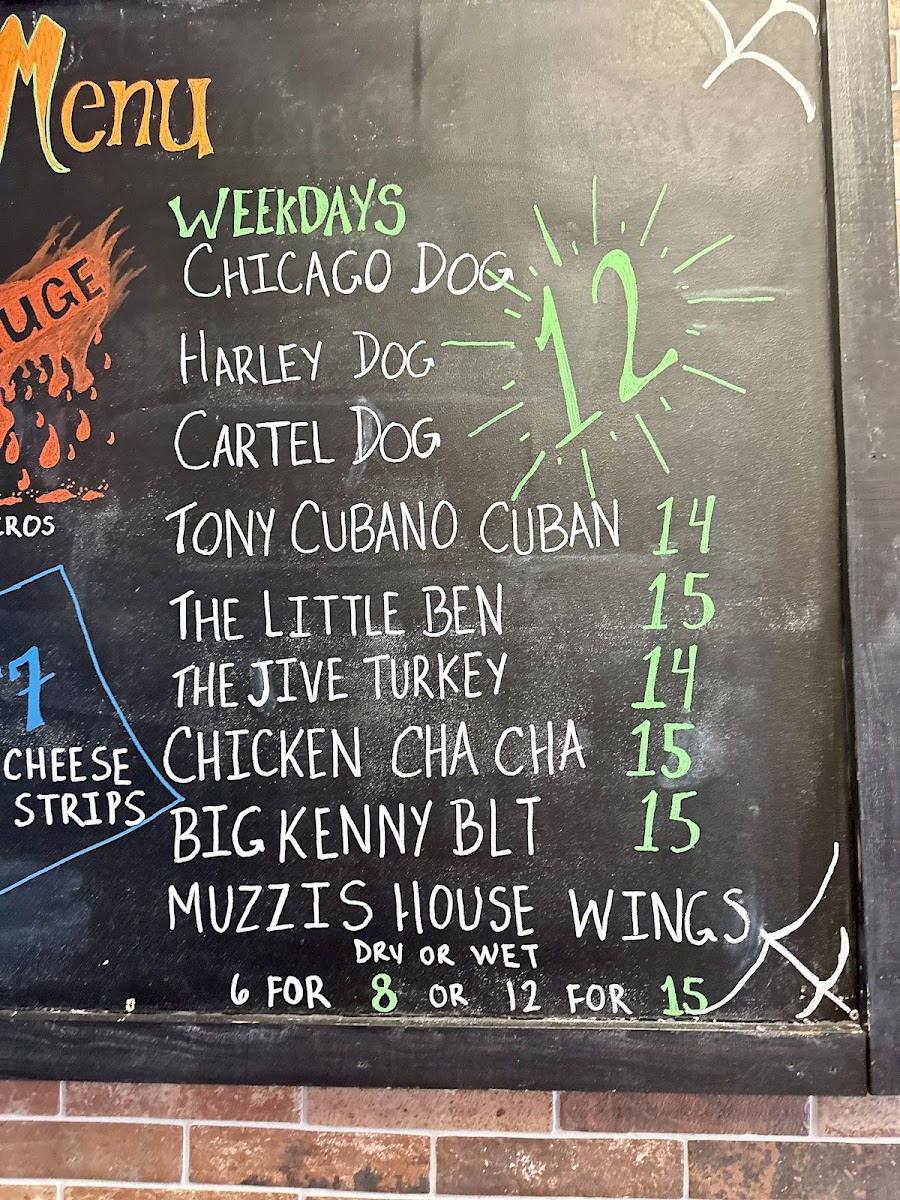 Menu
WEEKDAYS
CHICAGO DOG
HARLEY DOG
CARTEL DOG
12
TONY CUBANO CUBAN 14
THE LITTLE BEN 15
THE JIVE TURKEY 14
CHICKEN CHA CHA 15
BIG KENNY BLT 15
MUZZIS HOUSE WINGS
DRY OR WET
6 FOR 8 OR 12 FOR 15
7
CHEESE
STRIPS